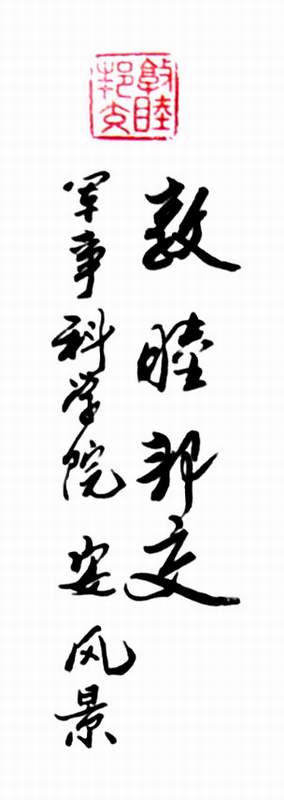 敦睦
邦交
敦睦邦交
军事科学院 风景